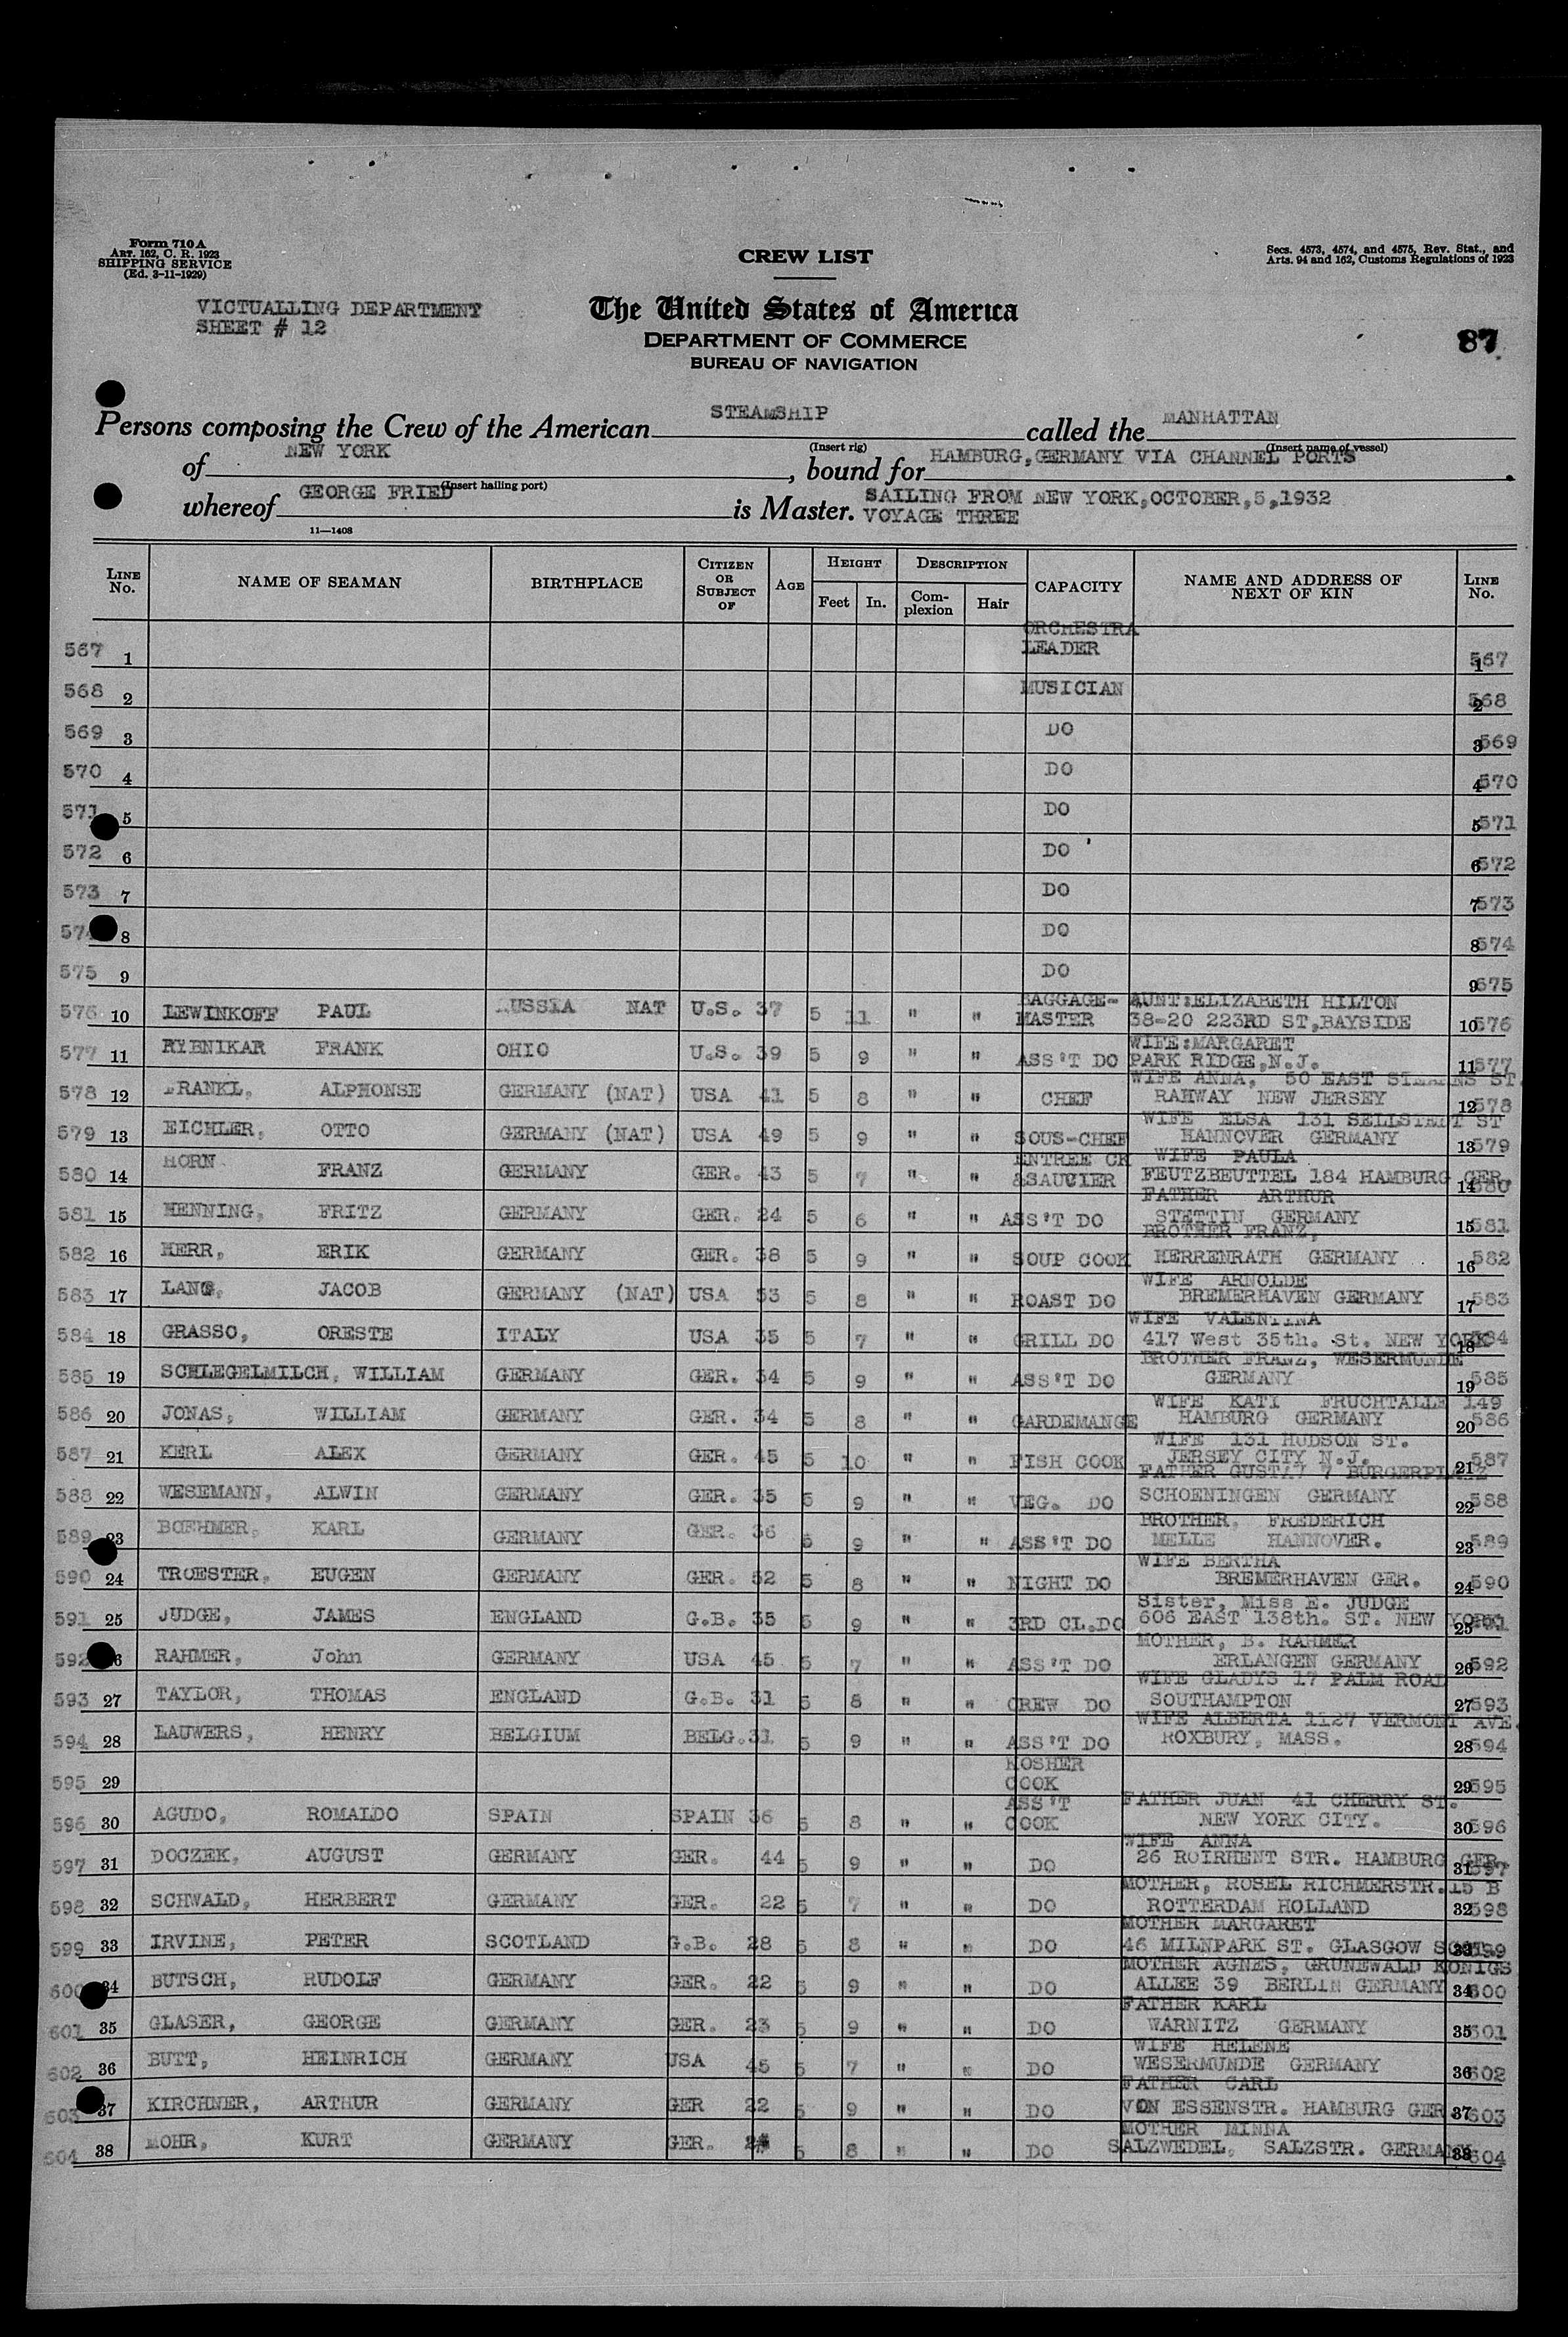 Form 710 A
ART. 162, C. R. 1923
SHIPPING SERVICE
(Ed. 3-11-1929)
CREW LIST
Secs. 4573, 4574, and 4575, Rev. Stat., and
Arts. 94 and 162, Customs Regulations of 1923
VICTUALLING DEPARTMENT
SHEET # 12
The United States of America
DEPARTMENT OF COMMERCE
BUREAU OF NAVIGATION
87
Persons composing the Crew of the American STEAMSHIP called the MANHATTAN
(Insert rig) (Insert name of vessel)
of NEW YORK, bound for HAMBURG, GERMANY VIA CHANNEL PORTS.
(Insert hailing port)
whereof GEORGE FRIED is Master. SAILING FROM NEW YORK, OCTOBER, 5, 1932
VOYAGE THREE
11—1408
LINE No. NAME OF SEAMAN BIRTHPLACE CITIZEN OR SUBJECT OF AGE HEIGHT Feet In. DESCRIPTION Complexion Hair CAPACITY NAME AND ADDRESS OF NEXT OF KIN LINE No.
567 1 ORCHESTRA LEADER 1 567
568 2 MUSICIAN 2 568
569 3 DO 3 569
570 4 DO 4 570
571 5 DO 5 571
572 6 DO 6 572
573 7 DO 7 573
8 DO 8 574
575 9 DO 9 575
576 10 LEWINKOFF PAUL RUSSIA NAT U.S. 37 5 11 " " BAGGAGE-MASTER AUNT:ELIZABETH HILTON 38-20 223RD ST,BAYSIDE 10 576
577 11 RYBNIKAR FRANK OHIO U.S. 39 5 9 " " ASS'T DO WIFE:MARGARET PARK RIDGE,N.J. 11 577
578 12 FRANKL, ALPHONSE GERMANY (NAT) USA 41 5 8 " " CHEF WIFE ANNA, 50 EAST ST. RAHWAY NEW JERSEY 12 578
579 13 EICHLER, OTTO GERMANY (NAT) USA 49 5 9 " " SOUS-CHEF WIFE ELSA 131 ST HANNOVER GERMANY 13 579
580 14 HORN FRANZ GERMANY GER. 43 5 7 " " ENTREE CK &SAUCIER WIFE PAULA FEUTZBEUTTEL 184 HAMBURG GER. 14 580
581 15 HENNING, FRITZ GERMANY GER. 24 5 6 " " ASS'T DO FATHER ARTHUR STETTIN GERMANY 15 581
582 16 HERR, ERIK GERMANY GER. 38 5 9 " " SOUP COOK BROTHER FRANZ, HERRENRATH GERMANY 16 582
583 17 LANG, JACOB GERMANY (NAT) USA 53 5 8 " " ROAST DO WIFE ARNOLDE BREMERHAVEN GERMANY 17 583
584 18 GRASSO, ORESTE ITALY USA 35 5 7 " " GRILL DO WIFE VALENTINA 417 West 35th. St. NEW YORK 18 584
585 19 SCHLEGELMILCH, WILLIAM GERMANY GER. 34 5 9 " " ASS'T DO BROTHER FRANZ, WESERMUNDE GERMANY 19 585
586 20 JONAS, WILLIAM GERMANY GER. 34 5 8 " " GARDEMANGE WIFE KATI FRUCHTALLE 149 HAMBURG GERMANY 20 586
587 21 KERL ALEX GERMANY GER. 45 5 10 " " FISH COOK WIFE 131 HUDSON ST. JERSEY CITY N.J. 21 587
588 22 WESEMANN, ALWIN GERMANY GER. 35 5 9 " " VEG. DO FATHER GUSTAV 7 BURGERPLATZ SCHOENINGEN GERMANY 22 588
589 23 BOEHMER, KARL GERMANY GER. 36 5 9 " " ASS'T DO BROTHER, FREDERICH MELLE HANNOVER. 23 589
590 24 TROESTER, EUGEN GERMANY GER. 52 5 8 " " NIGHT DO WIFE BERTHA BREMERHAVEN GER. 24 590
591 25 JUDGE, JAMES ENGLAND G.B. 35 5 9 " " 3RD CL.DO Sister, Miss E. JUDGE 606 EAST 138th. ST. NEW YORK 25 591
592 26 RAHMER, John GERMANY USA 45 5 7 " " ASS'T DO MOTHER, B. RAHMER ERLANGEN GERMANY 26 592
593 27 TAYLOR, THOMAS ENGLAND G.B. 31 5 8 " " CREW DO WIFE GLADYS 17 PALM ROAD SOUTHAMPTON 27 593
594 28 LAUWERS, HENRY BELGIUM BELG. 31 5 9 " " ASS'T DO WIFE ALBERTA 1127 VERMONT AVE. ROXBURY, MASS. 28 594
595 29 KOSHER COOK 29 595
596 30 AGUDO, ROMALDO SPAIN SPAIN 36 5 8 " " ASS'T COOK FATHER JUAN 41 CHERRY ST. NEW YORK CITY. 30 596
597 31 DOCZEK, AUGUST GERMANY GER. 44 5 9 " " DO WIFE ANNA 26 ROIRHENT STR. HAMBURG GER. 31 597
598 32 SCHWALD, HERBERT GERMANY GER. 22 5 7 " " DO MOTHER, ROSEL RICHMERSTR. 15 B ROTTERDAM HOLLAND 32 598
599 33 IRVINE, PETER SCOTLAND G.B. 28 5 8 " " DO MOTHER MARGARET 46 MILNPARK ST. GLASGOW SCOT. 33 599
600 34 BUTSCH, RUDOLF GERMANY GER. 22 5 9 " " DO MOTHER AGNES, GRUNEWALD KONIGS ALLEE 39 BERLIN GERMANY 34 600
601 35 GLASER, GEORGE GERMANY GER. 23 5 9 " " DO FATHER KARL WARNITZ GERMANY 35 601
602 36 BUTT, HEINRICH GERMANY USA 45 5 7 " " DO WIFE HELENE WESERMUNDE GERMANY 36 602
603 37 KIRCHNER, ARTHUR GERMANY GER 22 5 9 " " DO FATHER CARL VON ESSENSTR. HAMBURG GER. 37 603
604 38 MOHR, KURT GERMANY GER. 5 8 " " DO MOTHER MINNA SALZWEDEL, SALZSTR. GERMANY 38 604